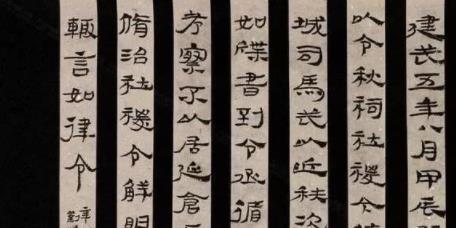 建武五年八月甲辰
以令秋祠社稷今
城司馬武以近秩次
如牒書到令丞循
考察不以居延倉
脩治社稷令鮮明
輒言如律令